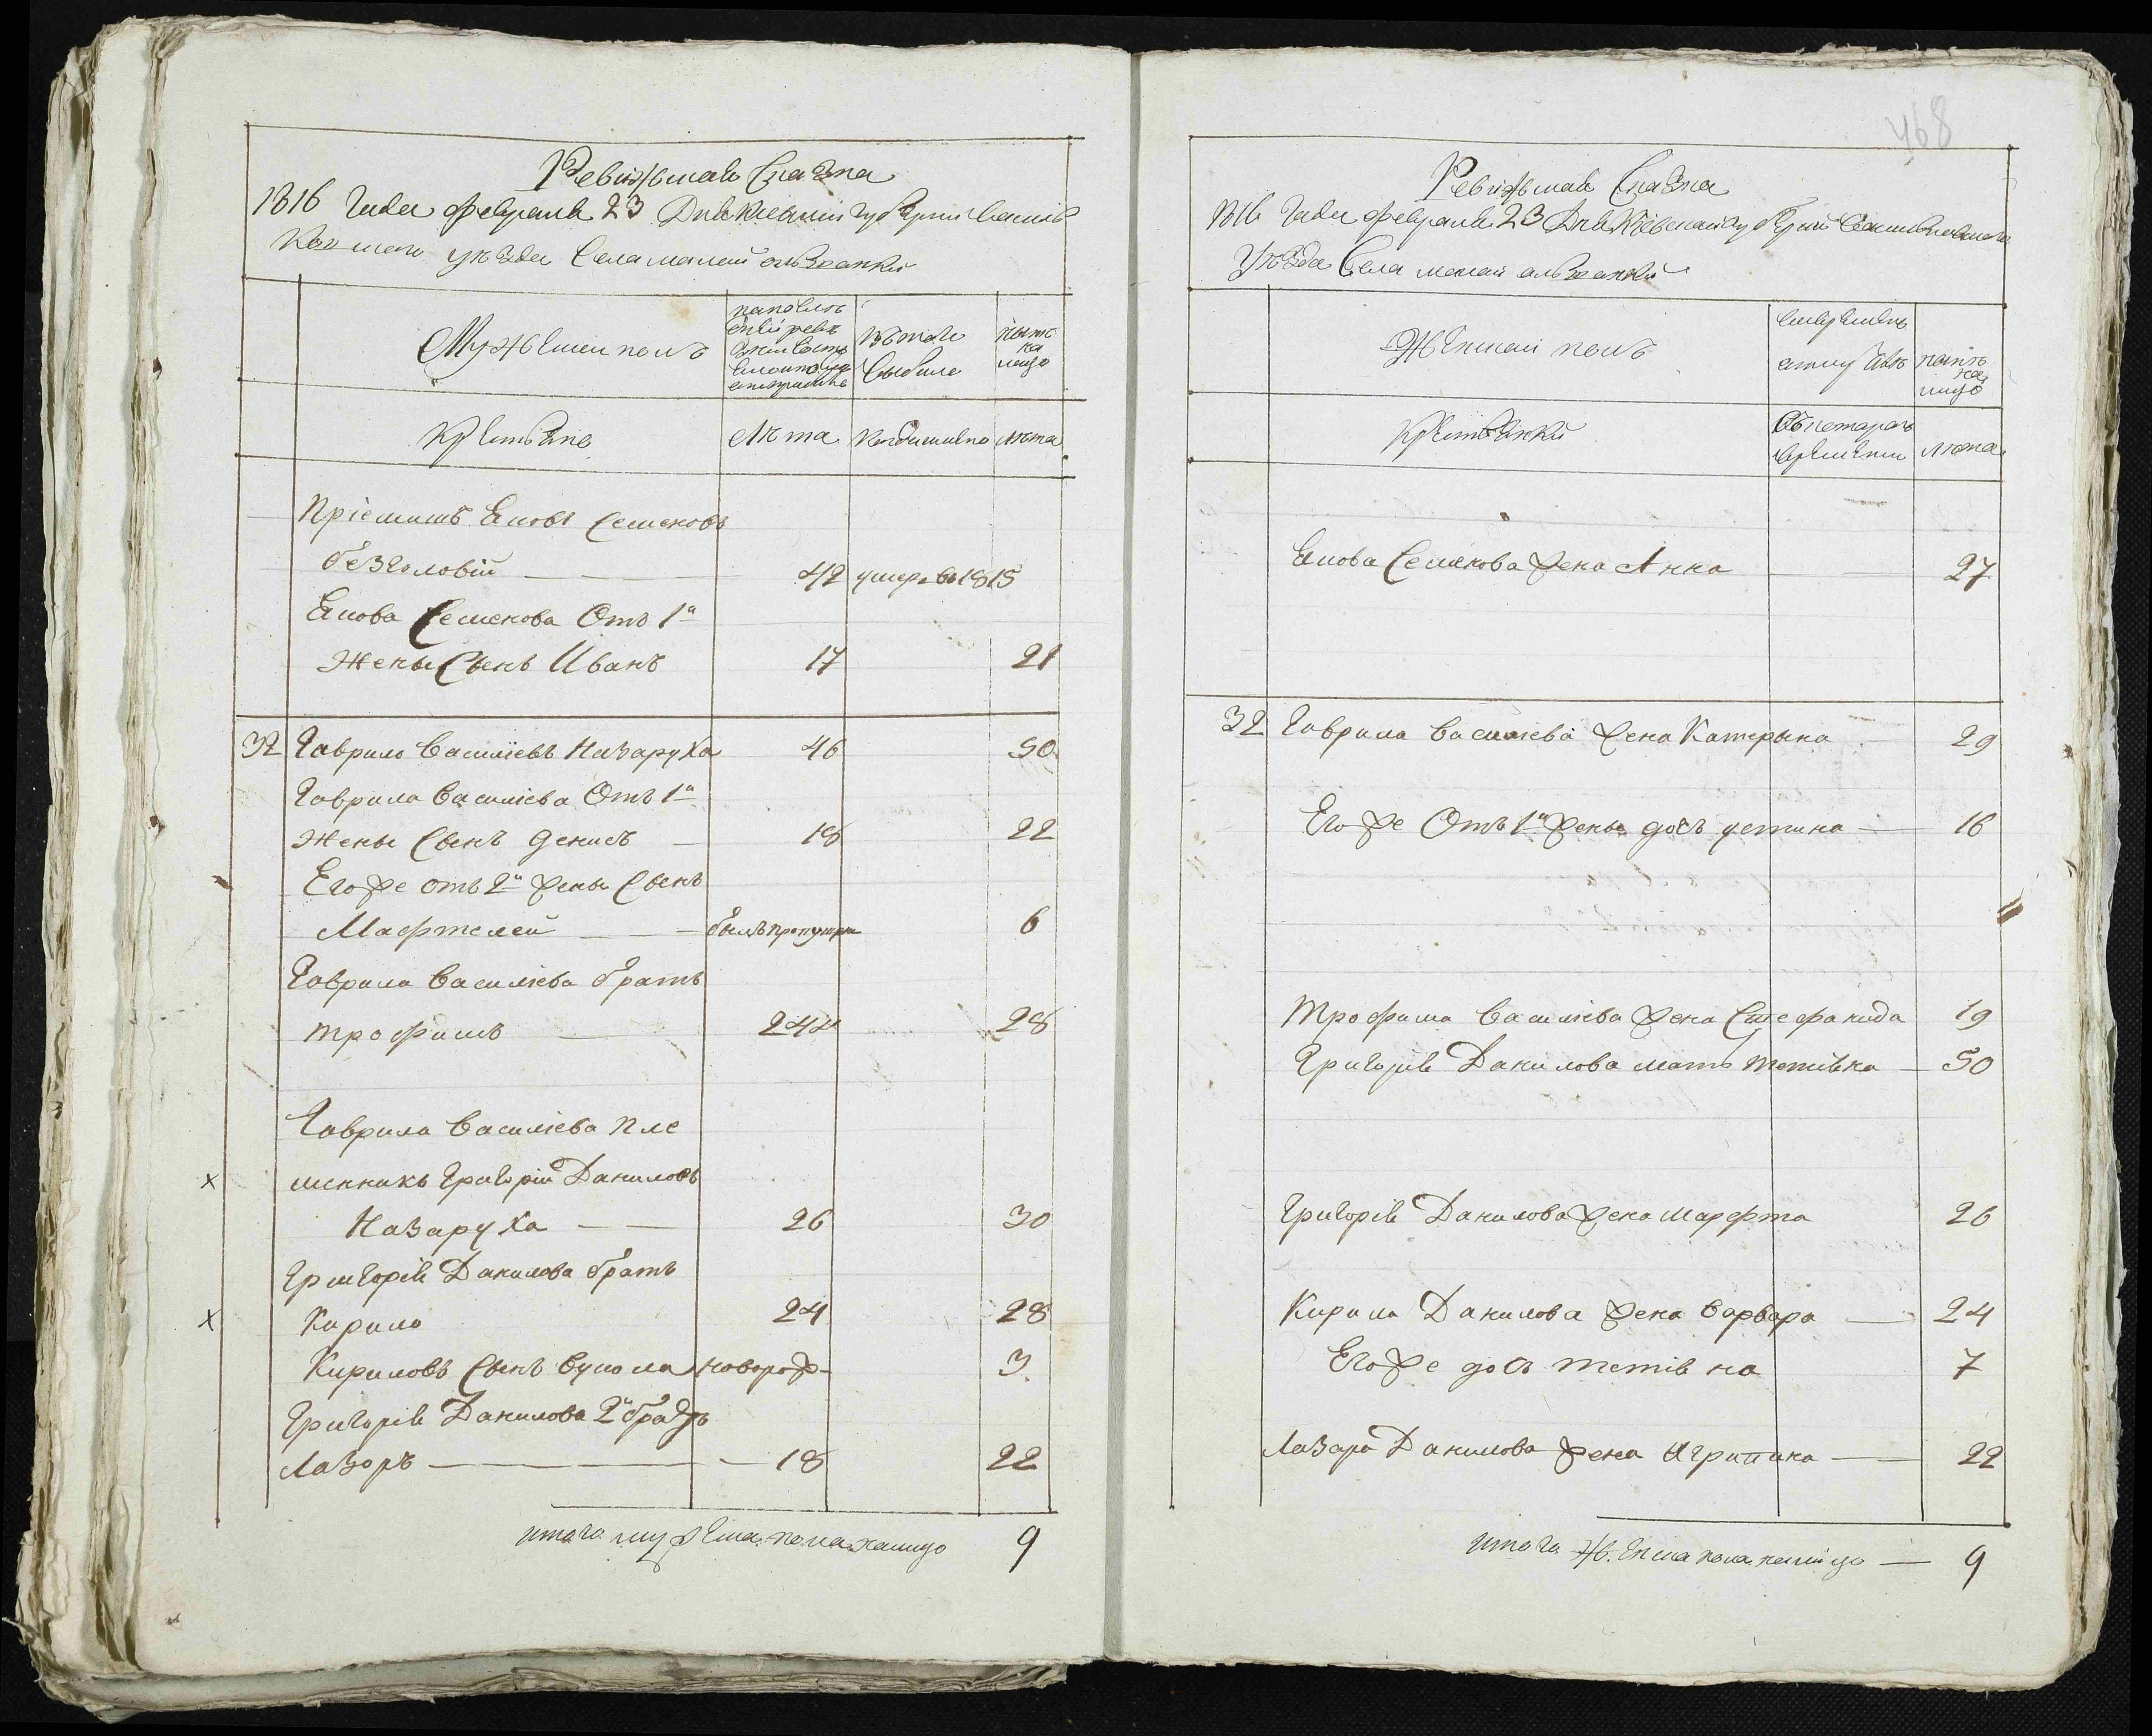 Ревижская Сказка
1816 Года февраля 23 Дня Киевской губернии Василь
ковского уезда Села малой ользанки
Мужеской полъ
по последней ревизии состояло и после оной прибыло
Изъ того выбыло
Ныне на лицо
Крестьяне
Лета
Когда именно
Лета
Пріемишъ Яковъ Семеновъ
безголовій 42 умре въ 1815
Якова Семенова Отъ 1й
Жены Сынъ Иванъ 17 21
32 Гаврило Василіевъ Назаруха 46 50
Гаврила Василіева Отъ 1й
Жены Сынъ Денисъ 18 22
Его же отъ 2й жены Сынъ
Мафтелей былъ пропущен 6
Гаврила Василіева братъ
трофимъ 24 28
Гаврила Василіева пле
менникъ Григорій Даниловъ
Назаруха 26 30
Григорія Данилова братъ
Кирило 24 28
Кириловъ Сынъ Вукола новорож- 3
Григорія Данилова 2й братъ
Лазоръ 18 22
итого мужеска пола налицо 9
468
Ревижская Сказка
1816 Года февраля 23 Дня Кіевской губерніи Васильковского
Уезда Села малой ользанки
Женской полъ
временно отлучке
ныне на лицо
Крестьянки
Съ которого времени
Лета
Якова Семенова жена Анна 27
32 Гаврила Василіева жена Катерына 29
Его же Отъ 1й жены дочь устина 16
Трофима Василіева жена Стефанида 19
Григорія Данилова мать тетіяна 50
Григорія Данилова жена Марфта 26
Кирила Данилова жена Варвара 24
Его же дочь тетіяна 7
Лазара Данилова жена Агрипина 22
итого женска пола налицо 9